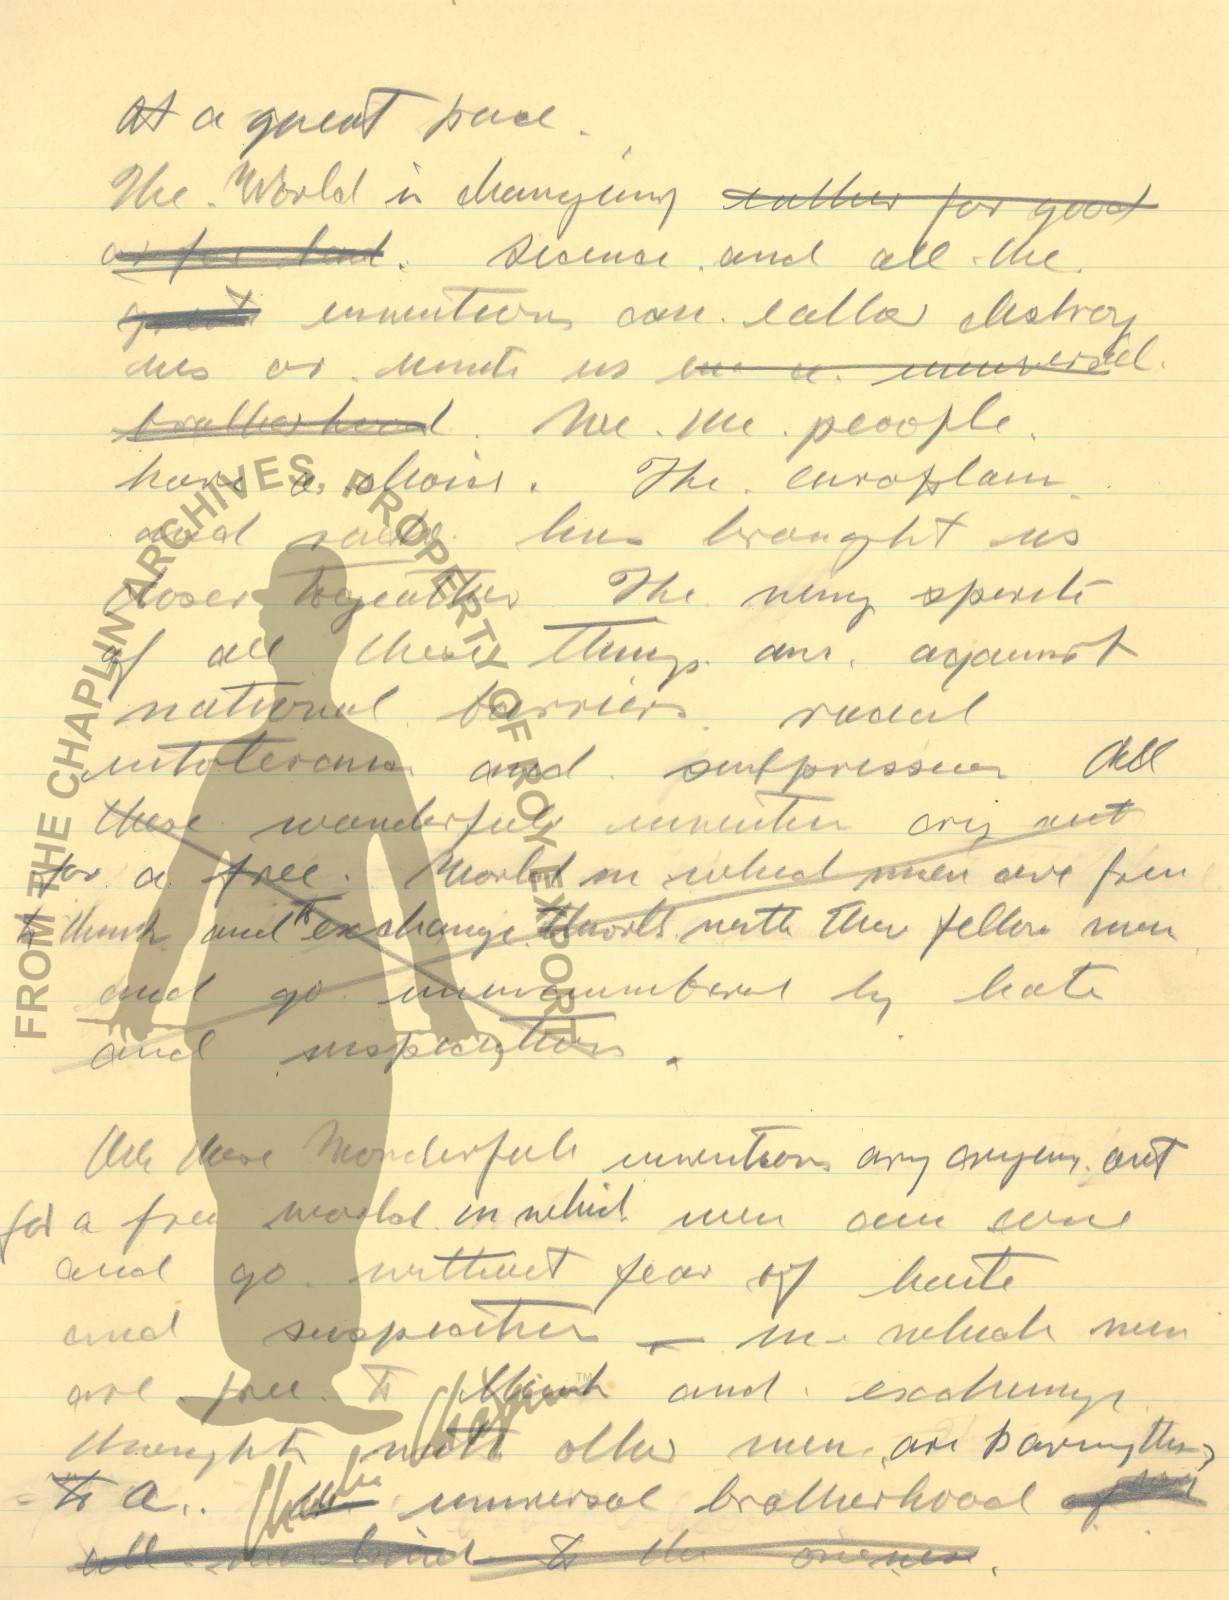 At a great pace.
The World is changeing eather for good
or for bad. Sciense and all the
great inventions can eather destroy
us or unite us in a universal
bratherhood. We the peoople
have a choise. The europlain
and radio has brought us
closer togeather The very sperit
of all these things are against
national barriers racial
intolerance and suppression All
these wonderfull invention cry out
for a free World in which men are free
to think and to exchange thoorts with ther fellow men
and go unincumbered by hate
and suspection.
All these Wonderfull inventions are cryeing out
for a free world in which men can come
and go without fear of hate
and suspection – in which men
are free to think and exchange
thought with other men,
to A.. universal bratherhood of
all mankind to the
FROM THE CHAPLIN ARCHIVES, PROPERTY OF ROY EXPORT
Charlie Chaplin™